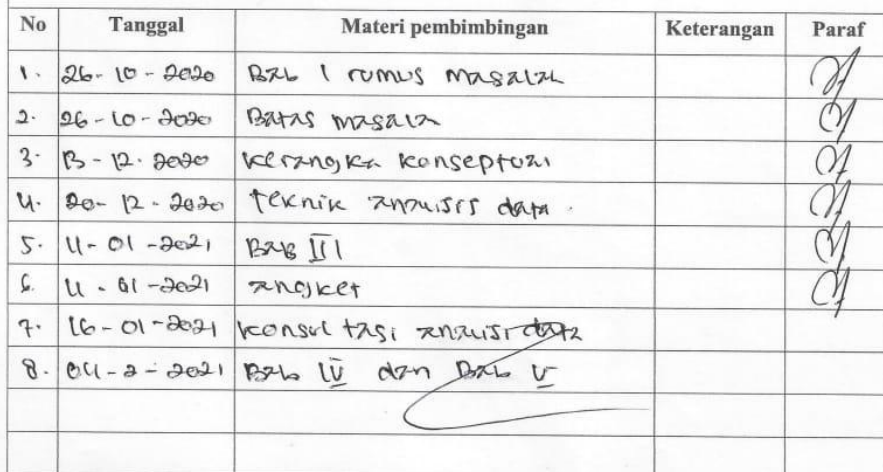 No Tanggal Materi pembimbingan Keterangan Paraf
1. 26-10-2020 Bab I rumus masalah
2. 26-10-2020 Batas masala
3. 13-12-2020 Kerangka konseptual
4. 20-12-2020 teknik analisis data.
5. 11-01-2021 Bab III
6. 11-01-2021 angket
7. 16-01-2021 konsul tasi analisi data
8. 04-2-2021 Bab IV dan Bab V